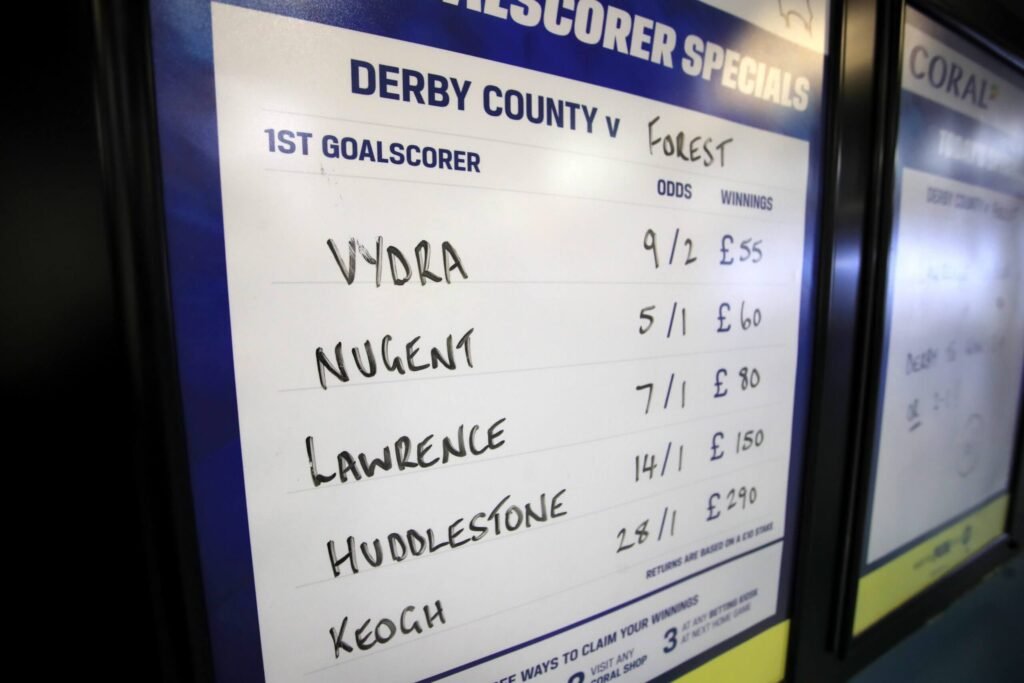 GOALSCORER SPECIALS
DERBY COUNTY v FOREST
1ST GOALSCORER
ODDS WINNINGS
VYDRA 9/2 £55
NUGENT 5/1 £60
LAWRENCE 7/1 £80
HUDDLESTONE 14/1 £150
KEOGH 28/1 £290
RETURNS ARE BASED ON A £10 STAKE
WAYS TO CLAIM YOUR WINNINGS
VISIT ANY CORAL SHOP
3 AT ANY BETTING KIOSK
AT NEXT HOME GAME
CORAL
DERBY COUNTY v
DERBY TO
OR 2-1